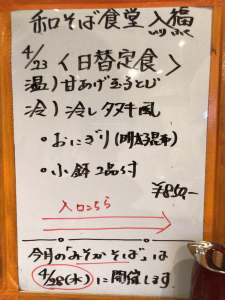 和そば食堂 入福
4/23 〈日替定食〉
温) 甘あげ玉子とじ
冷) 冷しタヌキ風
・おにぎり(明太昆布)
・小鉢2品付
¥850,-
入口こちら
今月の「みそかそば」は
4/28(木)に開催します